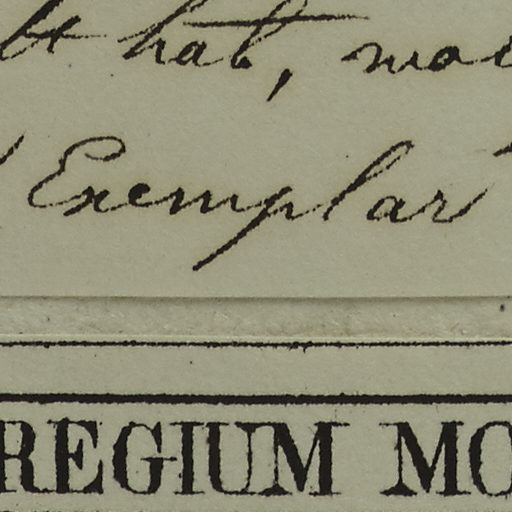 hat,
Exemplar
REGIUM MO